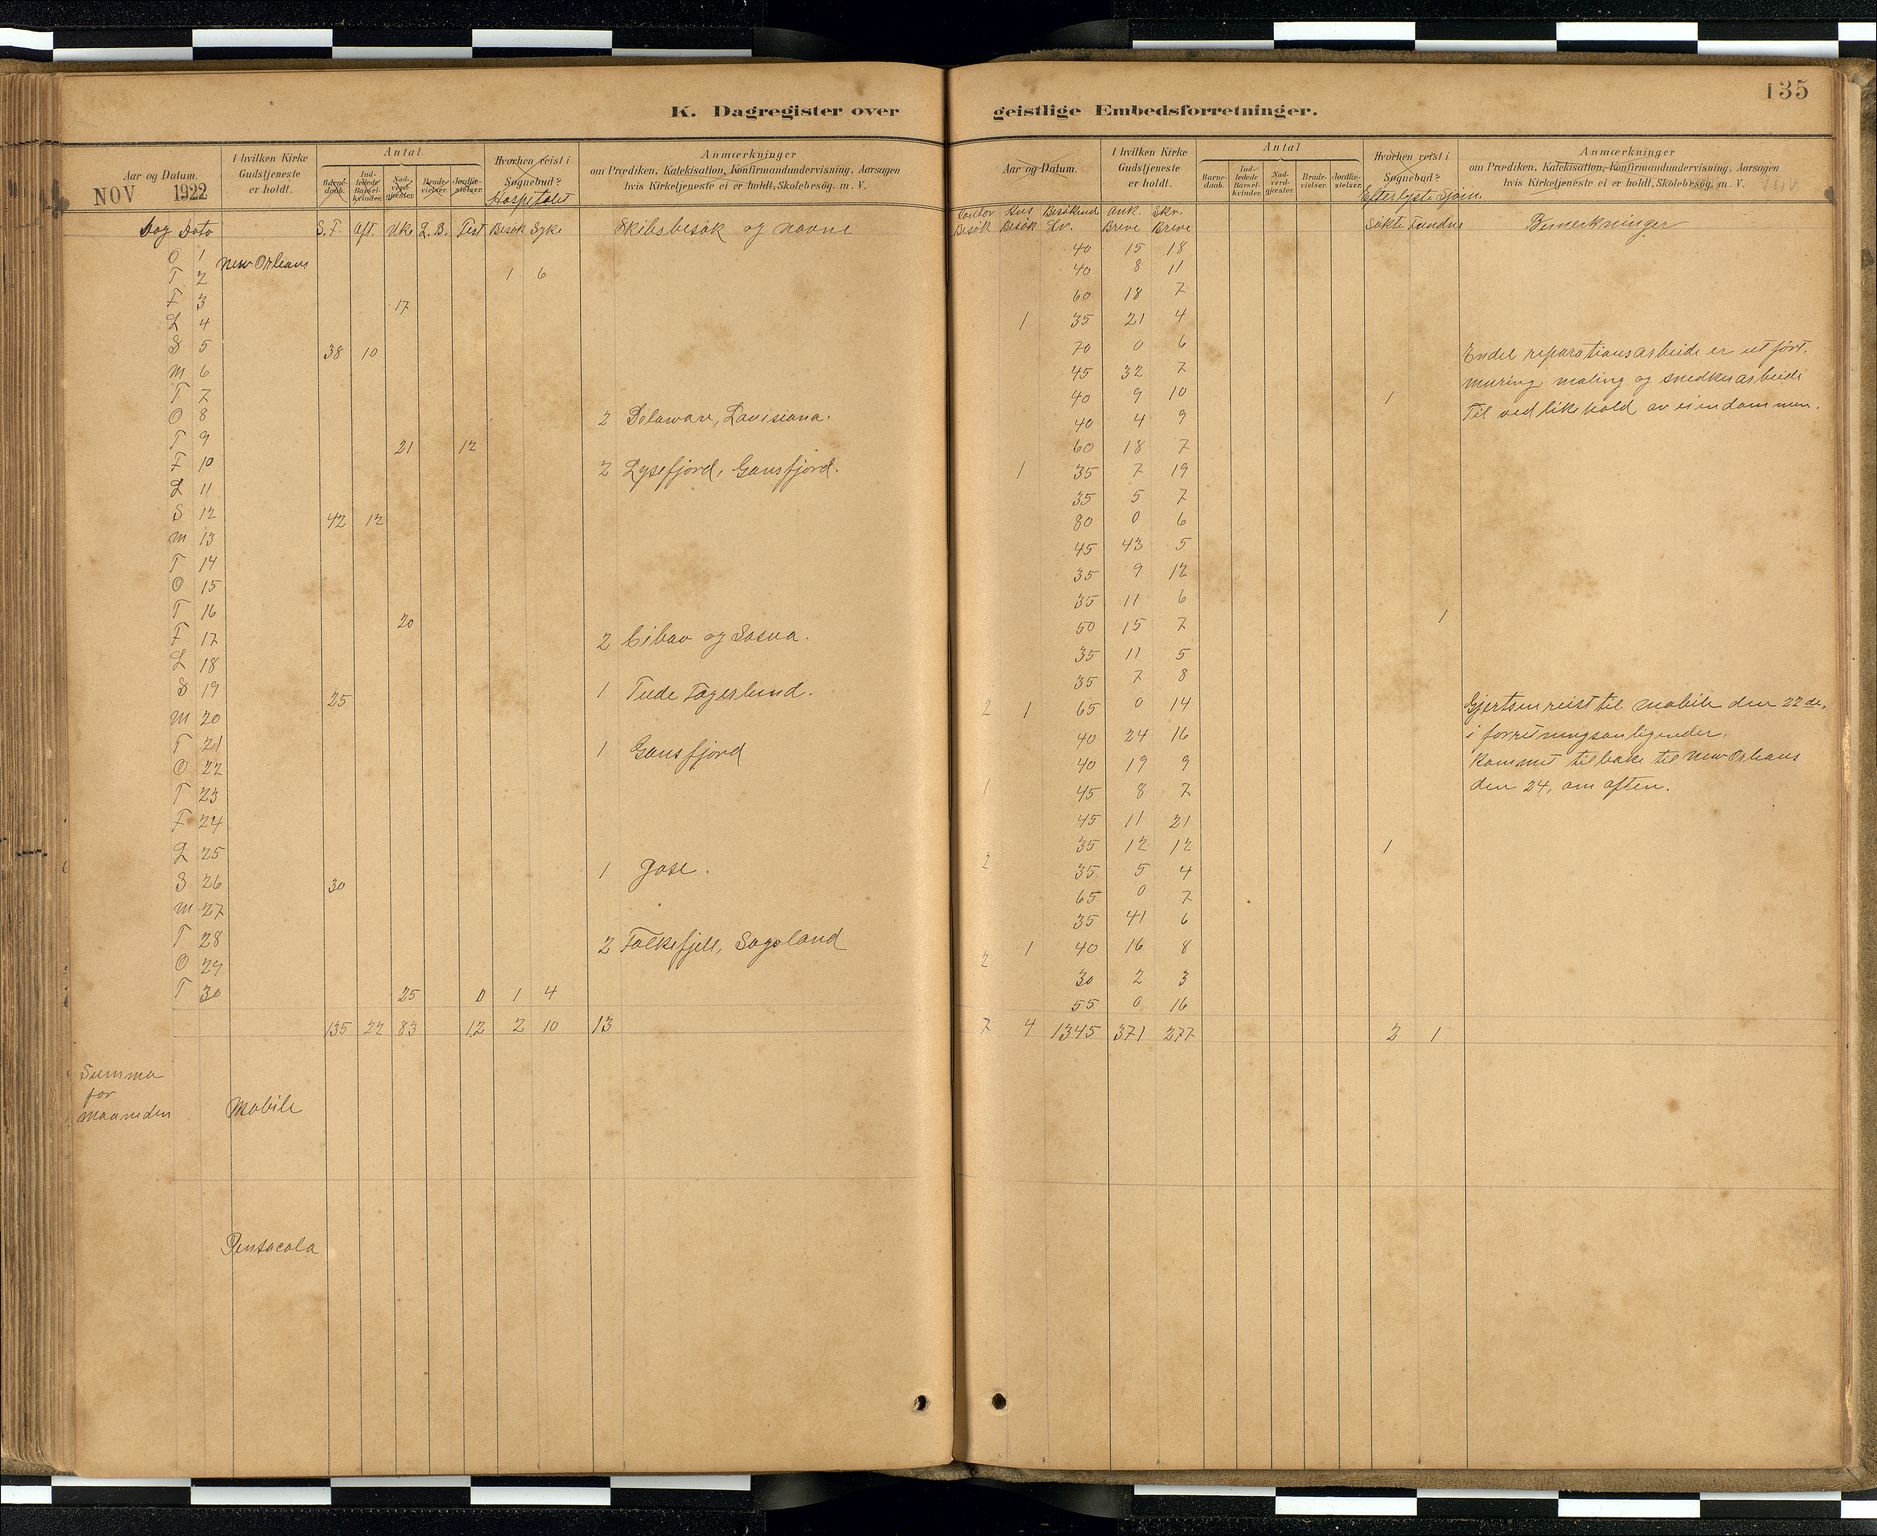 135
K. Dagregister over geistlige Embedsforretninger.
Aar og Datum.
NOV 1922
I hvilken Kirke Gudstjeneste er holdt.
Antal
Barnedaab.
Indledede Barselkvinder.
Nadverdgjester.
Brudevielser.
Jordfæstelser.
Hvorhen reist i Søgnebud?
Hospitalet
Anmærkninger
om Prædiken, Katekisation, Konfirmandundervisning. Aarsagen
hvis Kirketjeneste ei er holdt, Skolebesøg. m. V.
Dag Dato S.F. Aft. Uke L.B. Fest Besøk Syke Skibsbesøk og navne
O 1 New Orleans
T 2 1 6
F 3 17
L 4
S 5 38 10
M 6
T 7
O 8 2 Delaware, Lavisiana.
T 9 21 12
F 10 2 Lysefjord, Gansfjord.
L 11
S 12 42 12
M 13
T 14
O 15
T 16 20
F 17 2 Cibao og Sosua.
L 18
S 19 25 1 Tude Fagerlund.
M 20
T 21 1 Gansfjord
O 22
T 23
F 24
L 25 1 Gose.
S 26 30
M 27
T 28 2 Falkefjell, Sagoland
O 29
T 30 25 0 1 4
135 22 83 12 2 10 13
Summa
for
Maaneden
Mobile
Pensacola
Aar og Datum.
I hvilken Kirke Gudstjeneste er holdt.
Antal
Barnedaab.
Indledede Barselkvinder.
Nadverdgjester.
Brudevielser.
Jordfæstelser.
Hvorhen reist i Søgnebud?
Efterlyste Sjøm.
Anmærkninger
om Prædiken, Katekisation, Konfirmandundervisning. Aarsagen
hvis Kirketjeneste ei er holdt, Skolebesøg. m. V.
Kontor Hus Besøkend Ank. Skr.
Besøk Besøk Lv. Breve Breve Søkte Fundne Bemerkninger
40 15 18
40 8 11
60 18 7
1 35 21 4
70 0 6 Endel reparationsarbeide er utført.
45 32 7 muring, maling og snedkerarbeide
40 9 10 1 Til vedlikehold av eiendommen.
40 4 9
60 18 7
1 35 7 19
35 5 7
80 0 6
45 43 5
35 9 12
35 11 6
50 15 7 1
35 11 5
35 7 8
2 1 65 0 14 Gjertsen reist til Mobile den 22de,
40 24 16 i forretningsanligender.
40 19 9 Kommet tilbake til New Orleans
1 45 8 7 den 24, om aften.
45 11 21
35 12 12 1
2 35 5 4
65 0 7
35 41 6
1 40 16 8
2 30 2 3
55 0 16
7 4 1345 371 277 2 1